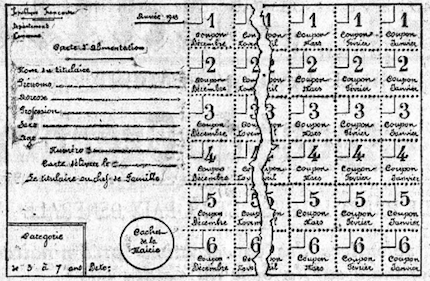 République Française
Département
Commune
Année 19
Carte d'Alimentation
Nom du titulaire
Prénoms
Adresse
Profession
Sexe
Age
Numéro
Carte délivrée le
Le titulaire ou chef de Famille
Catégorie
de 3 à 7 ans
Date:
Cachet
de la
Mairie
1 1 1 1 1 1
Coupon Cou pon Coupon Coupon Coupon
Décembre Mars Février Janvier
2 2 2 2 2
Coupon Cou pon Coupon Coupon Coupon
Décembre Nove Mars Février Janvier
3 3 3 3 3
Coupon Cou pon Coupon Coupon Coupon
Décembre Novem Mars Février Janvier
4 4 4 4 4
Coupon Cou pon Coupon Coupon Coupon
Décembre Novem Mars Février Janvier
5 5 5 5 5
Coupon Cou pon Coupon Coupon Coupon
Décembre Nove Mars Février Janvier
6 6 6 6 6
Coupon Cou pon Coupon Coupon Coupon
Décembre Nove Mars Février Janvier